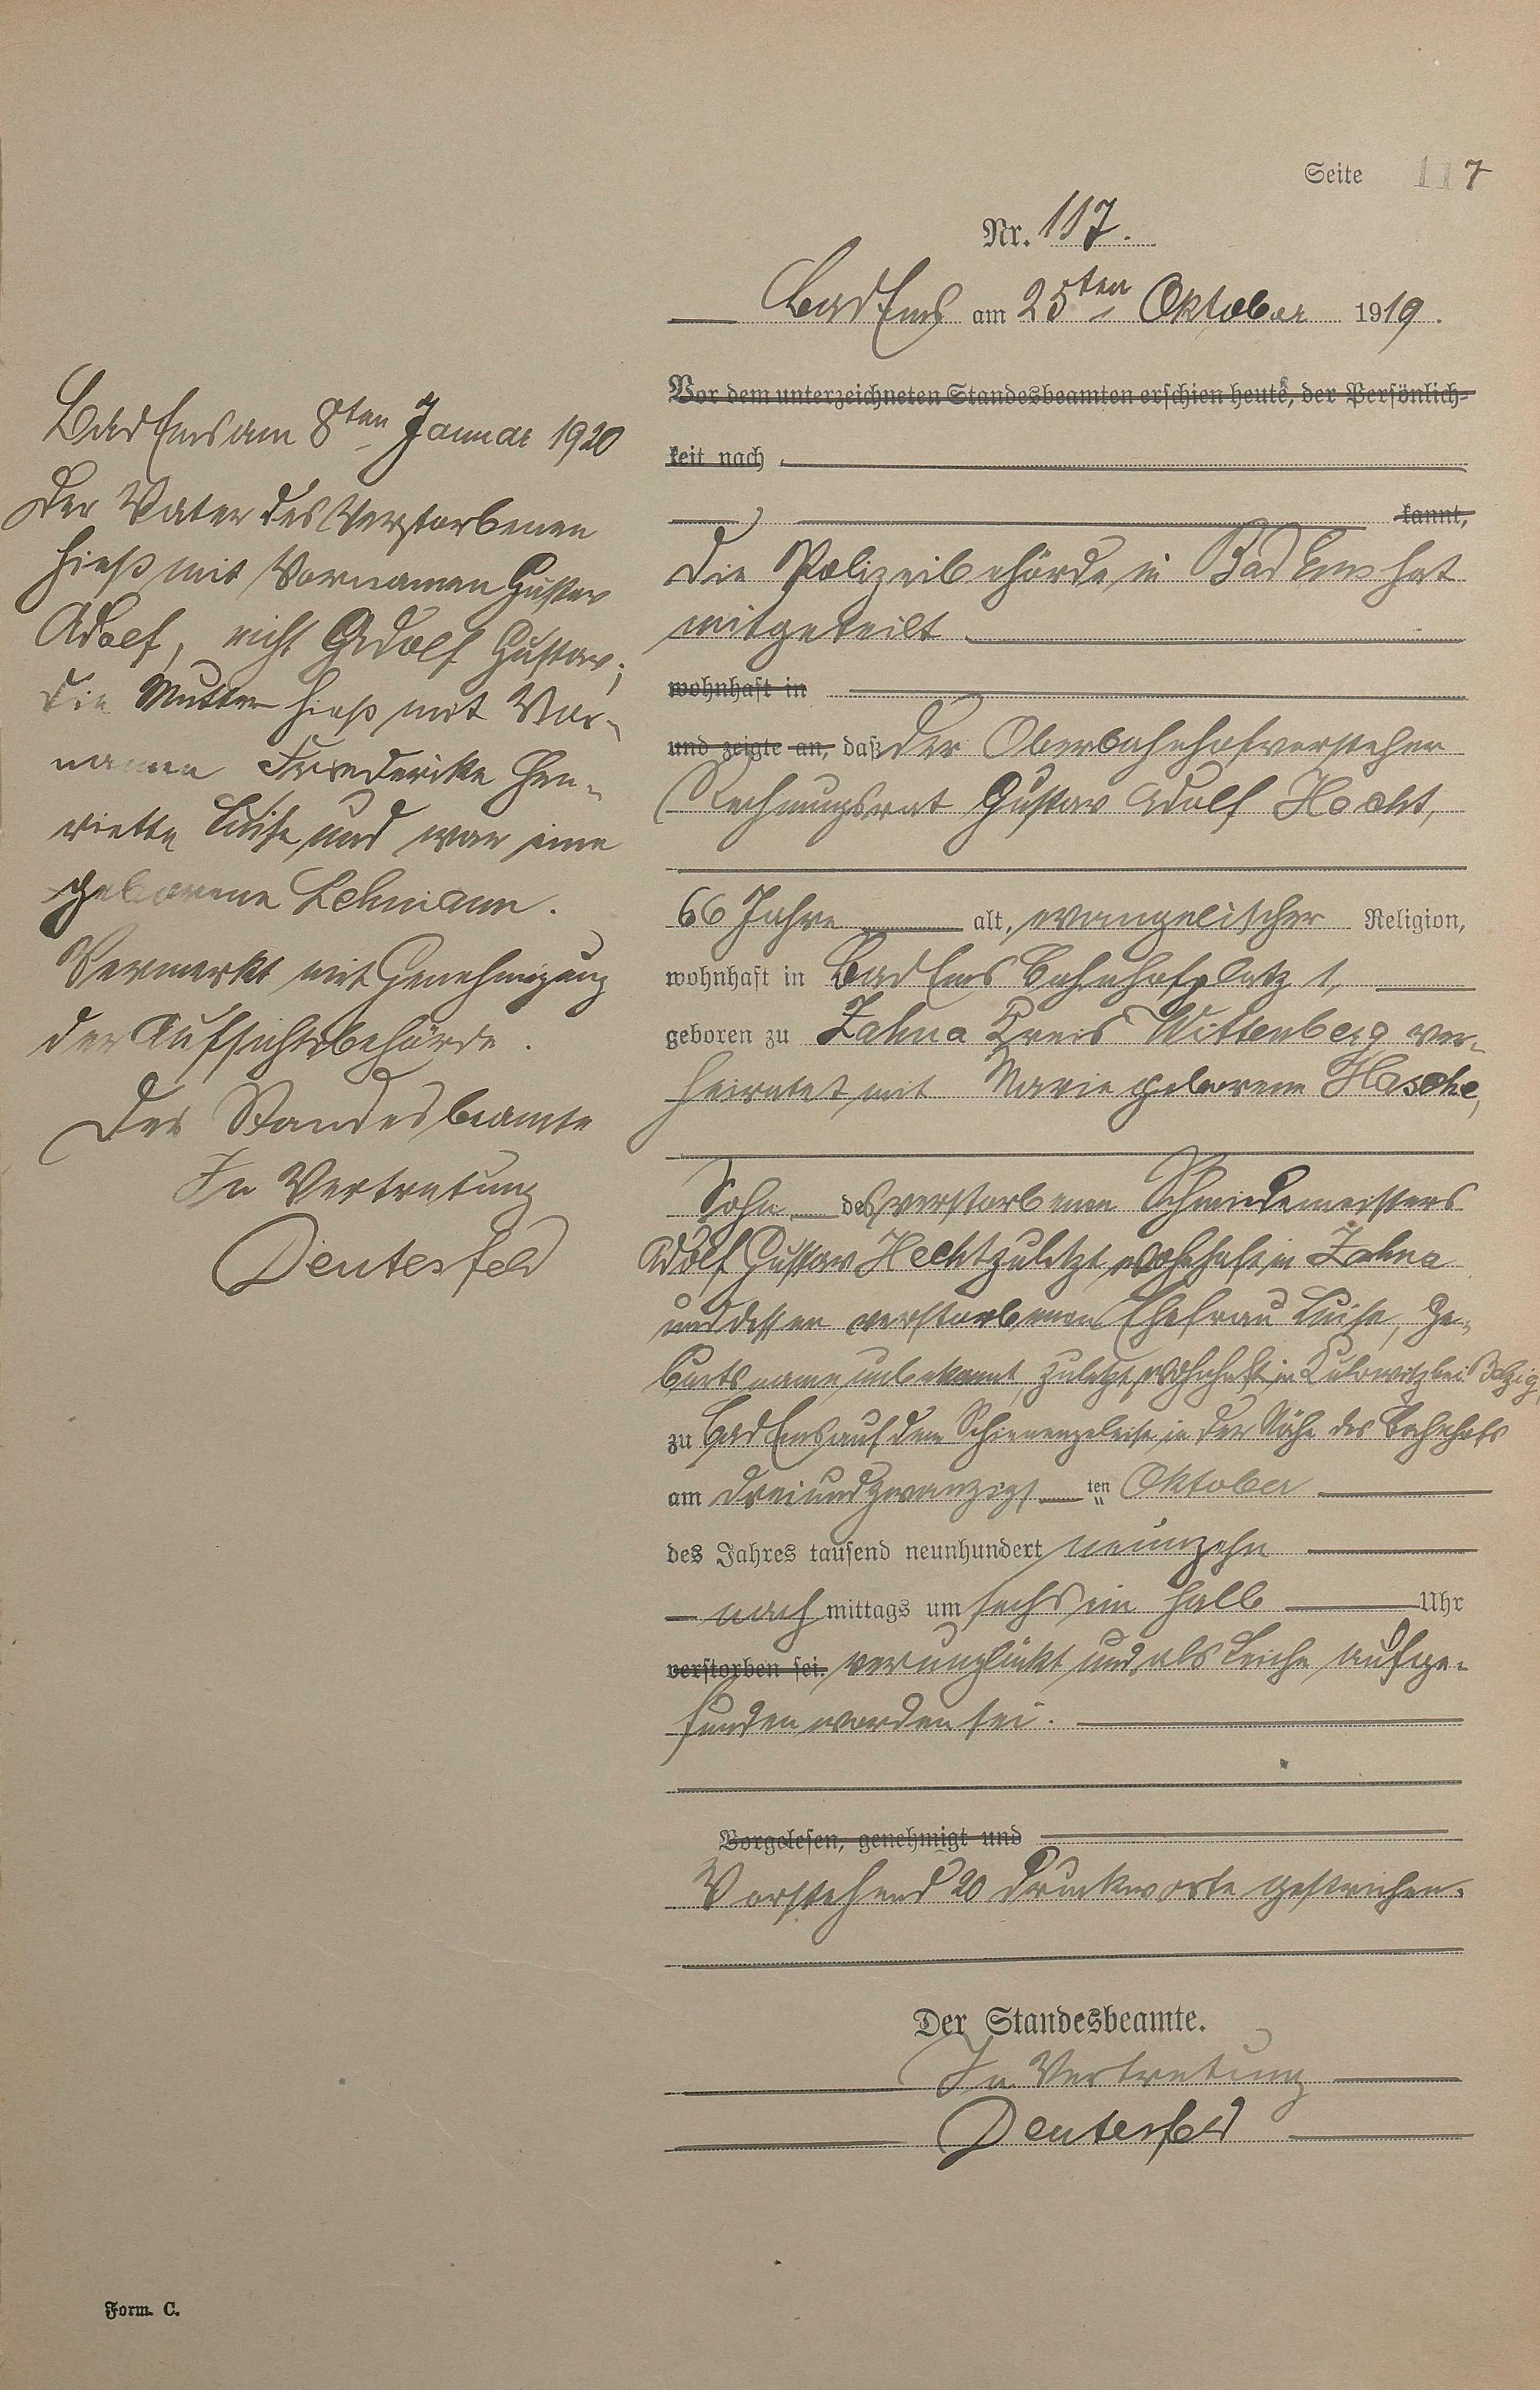 Seite 117
Nr. 117.
Bad Ems am 25ten Oktober 1919.
Vor dem unterzeichneten Standesbeamten erschien heute, der Persönlich-
keit nach
kannt,
Die Polizeibehörde in Bad Ems hat
mitgeteilt
wohnhaft in
und zeigte an, daß der Oberbahnhofvorsteher
Rechnungsrat Gustav Adolf Hecht,
66 Jahre alt, evangelischer Religion,
wohnhaft in Bad Ems Bahnhofplatz 1,
geboren zu Zahna Kreis Wittenberg ver-
heiratet mit Marie geborene Hasche,
Sohn des verstorbenen Schmiedemeisters
Adolf Gustav Hecht zuletzt wohnhaft in Zahna
und dessen verstorbenen Ehefrau Luise, Ge-
burtsname unbekannt, zuletzt wohnhaft in bei Belzig,
zu Bad Ems auf dem Schienengeleise in der Nähe des Bahnhofs
am dreiundzwanzigsten Oktober
des Jahres tausend neunhundert neunzehn
nachmittags um sechs ein halb Uhr
verstorben sei. verunglückt und als Leiche aufge-
funden worden sei.
Vorgelesen, genehmigt und
Vorstehend 20 Druckworte gestrichen.
Der Standesbeamte.
In Vertretung
Deuterfeld
Bad Ems am 8ten Januar 1920
Der Vater des Verstorbenen
hieß mit Vornamen Gustav
Adolf, nicht Adolf Gustav;
die Mutter hieß mit Vor-
namen Friederike Hen-
riette Luise und war eine
geborene Lehmann.
Vermerkt mit Genehmigung
der Aufsichtsbehörde.
Der Standesbeamte
In Vertretung
Deuterfeld
Form. C.